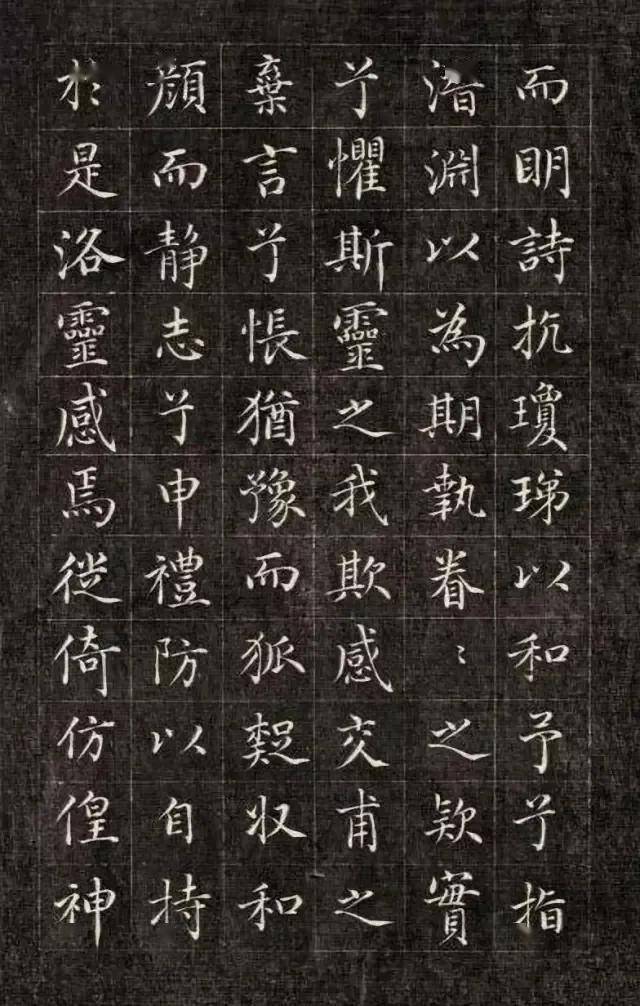 而眀詩抗瓊珶以和予兮指
潜淵以為期執眷〻之欵實
兮懼斯靈之我欺感交甫之
棄言兮悵猶豫而狐疑収和
顏而静志兮申禮防以自持
於是洛靈感焉徙倚仿偟神